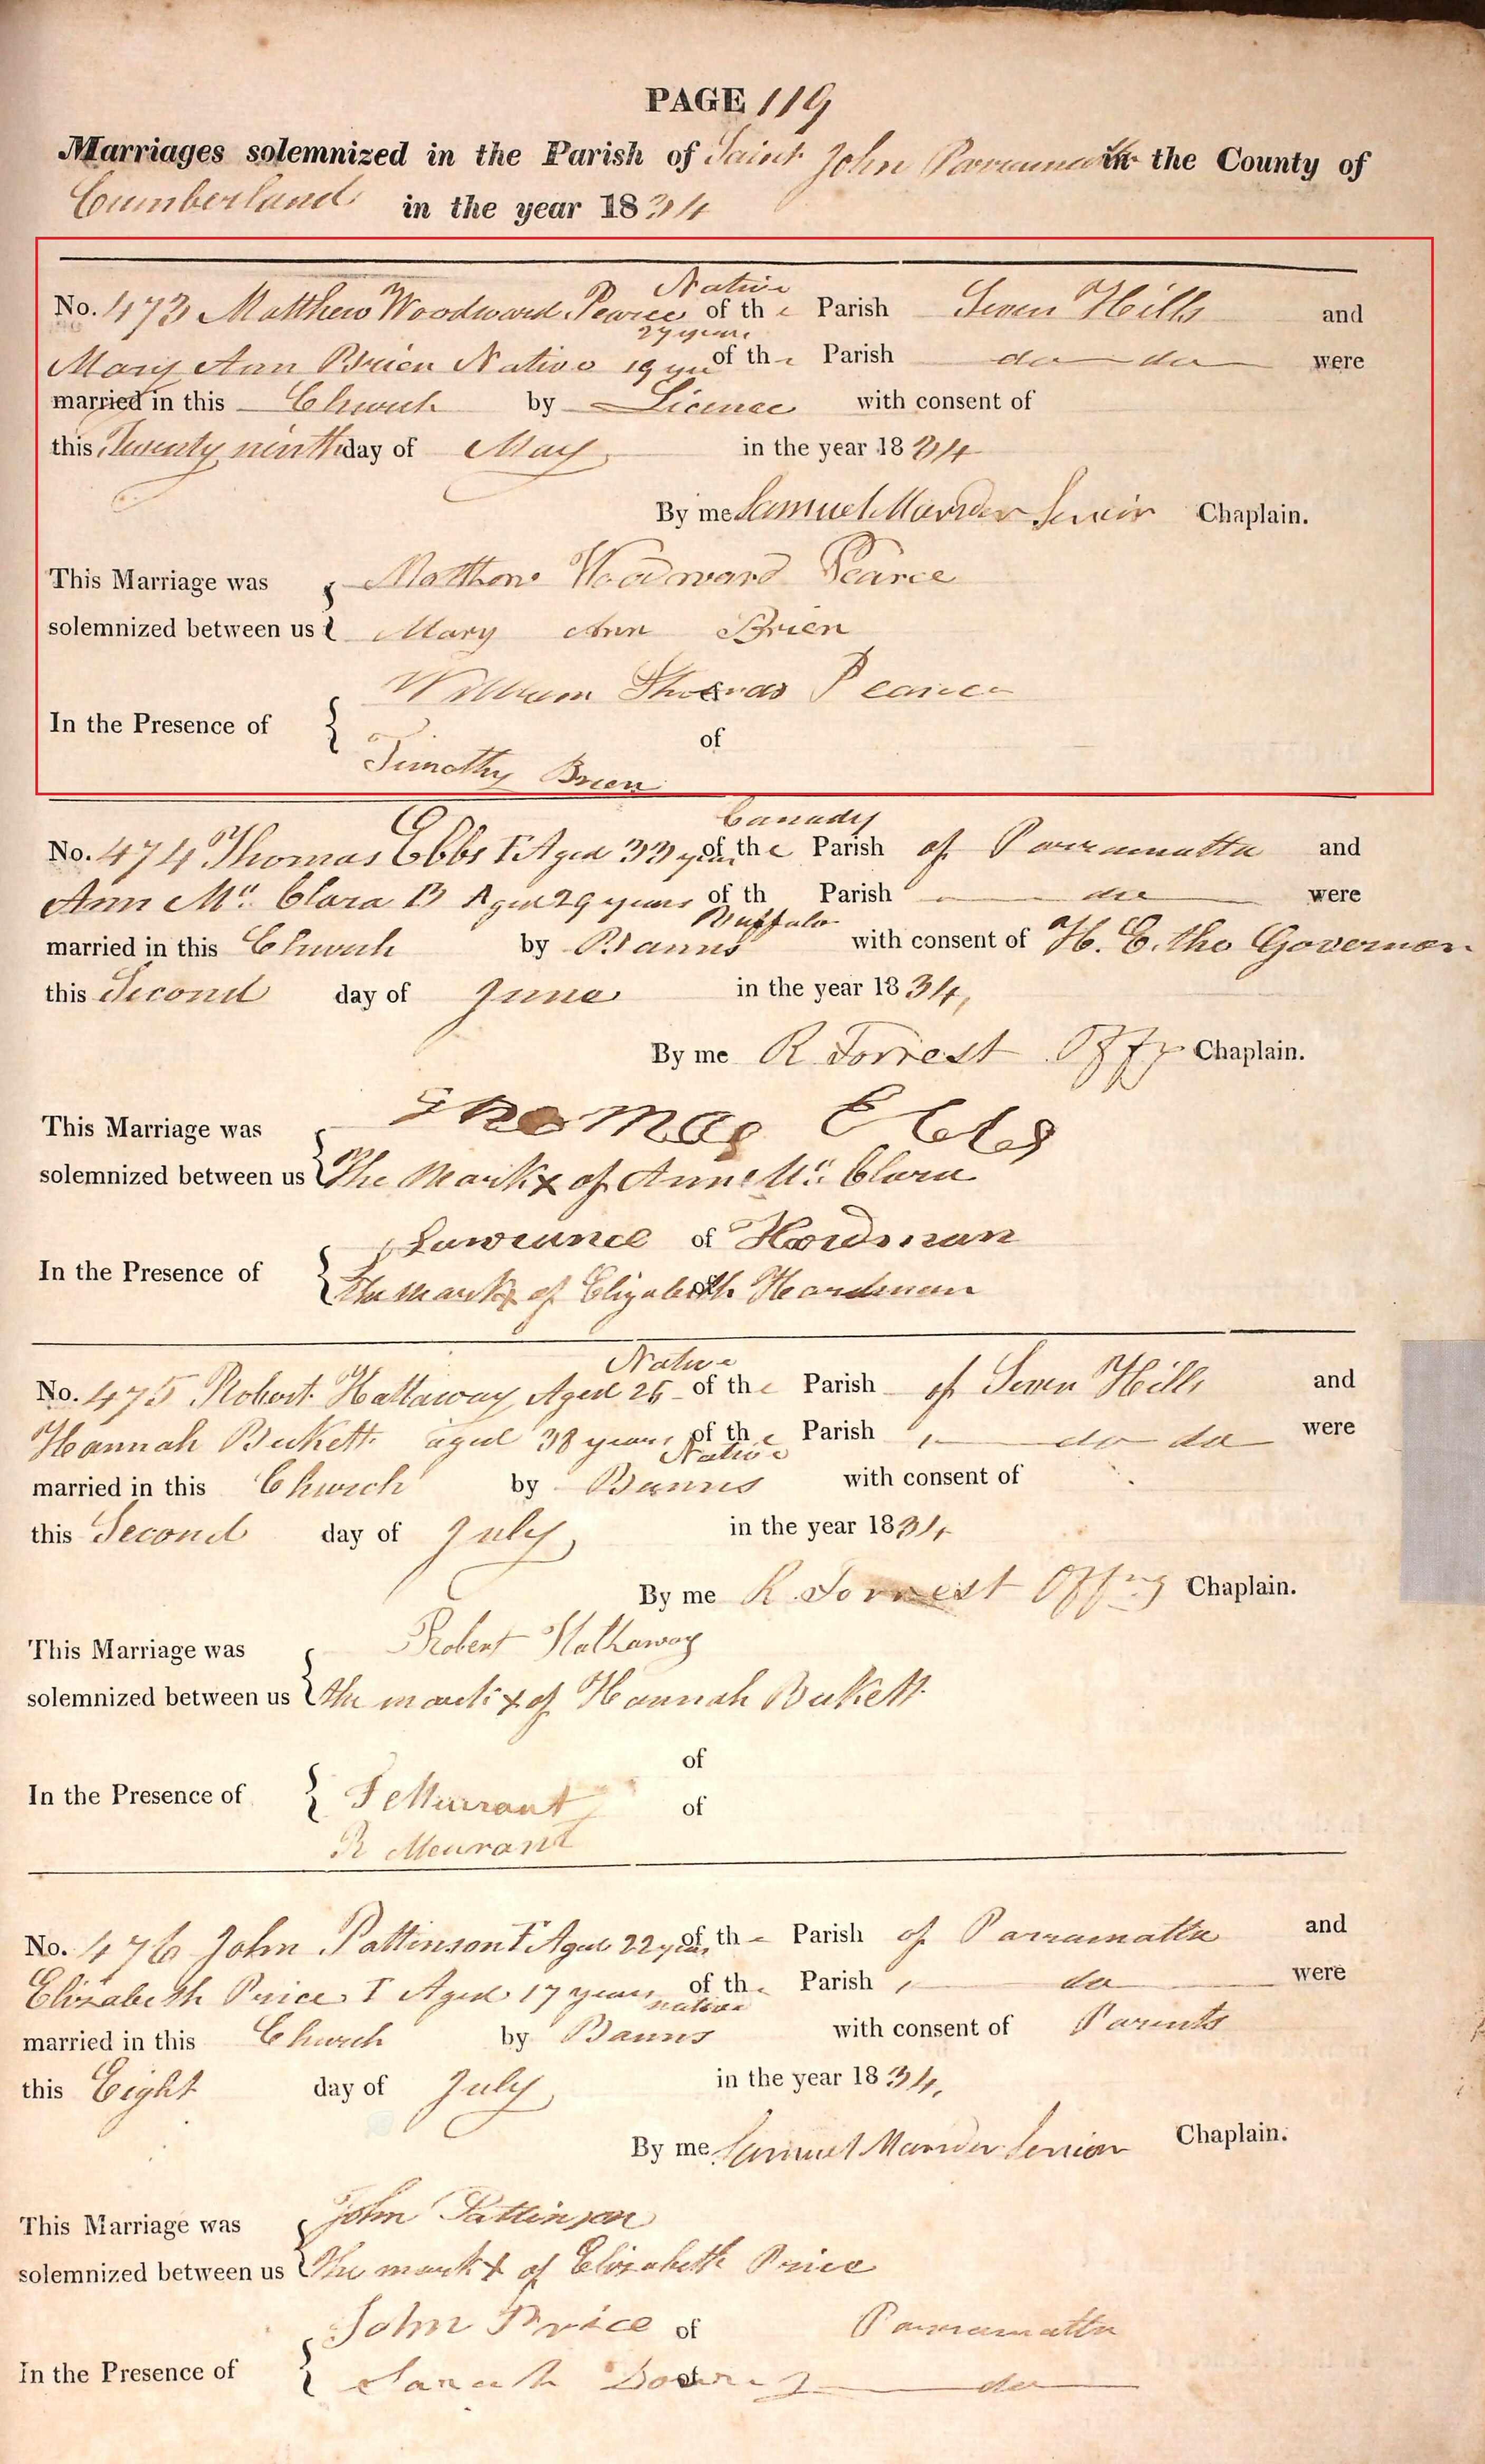 PAGE 119
Marriages solemnized in the Parish of Saint John Parramatta in the County of
Cumberland in the year 1834
Native
No. 473 Matthew Woodward Pearce of the Parish Seven Hills and
27 years
Mary Ann Brien Native 19 of the Parish do do were
married in this Church by Licence with consent of
this Twenty ninth day of May in the year 1834
By me Samuel Marsden Senior Chaplain.
This Marriage was { Matthew Woodward Pearce
solemnized between us { Mary Ann Brien
William Thomas Pearce
In the Presence of { of
Timothy Brien
Canady
No. 474 Thomas Ebbs F Aged 33 years of the Parish of Parramatta and
Ann Mc Clara B Aged 29 years of th Parish do were
Buffalo
married in this Church by Banns with consent of H. E. the Governor
this Second day of June in the year 1834,
By me R Forrest Offg Chaplain.
This Marriage was { Thomas Ebbs
solemnized between us { The Mark x of Ann Mc Clara
Lawrance of Hardman
In the Presence of {
The Mark x of Elizabeth Hardman
Native
No. 475 Robert Hattaway Aged 26 of the Parish of Seven Hills and
Hannah Beckett aged 38 years of the Parish do do were
Native
married in this Church by Banns with consent of
this Second day of July in the year 1834
By me R Forrest Offg Chaplain.
This Marriage was { Robert Hathaway
solemnized between us { the mark x of Hannah Beckett
of
In the Presence of { F Meurant of
R Meurant
No. 476 John Pattinson F Aged 22 years of the Parish of Parramatta and
Elizabeth Price I Aged 17 years of the Parish do were
native
married in this Church by Banns with consent of Parents
this Eight day of July in the year 1834,
By me Samuel Marsden Senior Chaplain.
This Marriage was { John Pattinson
solemnized between us { The mark x of Elizabeth Price
John Price of Parramatta
In the Presence of {
Sarah of do